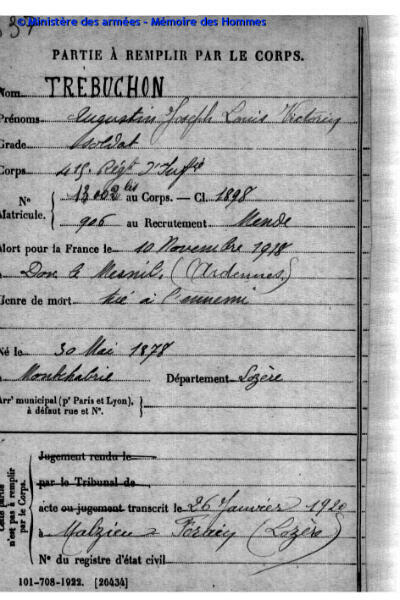 © Ministère des armées - Mémoire des Hommes
PARTIE À REMPLIR PAR LE CORPS.
Nom TRÉBUCHON
Prénoms Augustin Joseph Louis Victorin
Grade Soldat
Corps 415. Régt d'Inf<sup>ie</sup>
N° Matricule. { 13002 bis au Corps. — Cl. 1898
906 au Recrutement Mende
Mort pour la France le 10 Novembre 1918
à Dom le Mesnil, (Ardennes)
Genre de mort tué à l'ennemi
Né le 30 Mai 1878
à Montchabrie Département Lozère
Arr<sup>t</sup> municipal (p<sup>r</sup> Paris et Lyon), à défaut rue et N°. }
Cette partie n'est pas à remplir par le Corps.
Jugement rendu le
par le Tribunal de
acte ou jugement transcrit le 26 Janvier 1920
à Malzieu Forain (Lozère)
N° du registre d'état civil
101-708-1922. [26434]